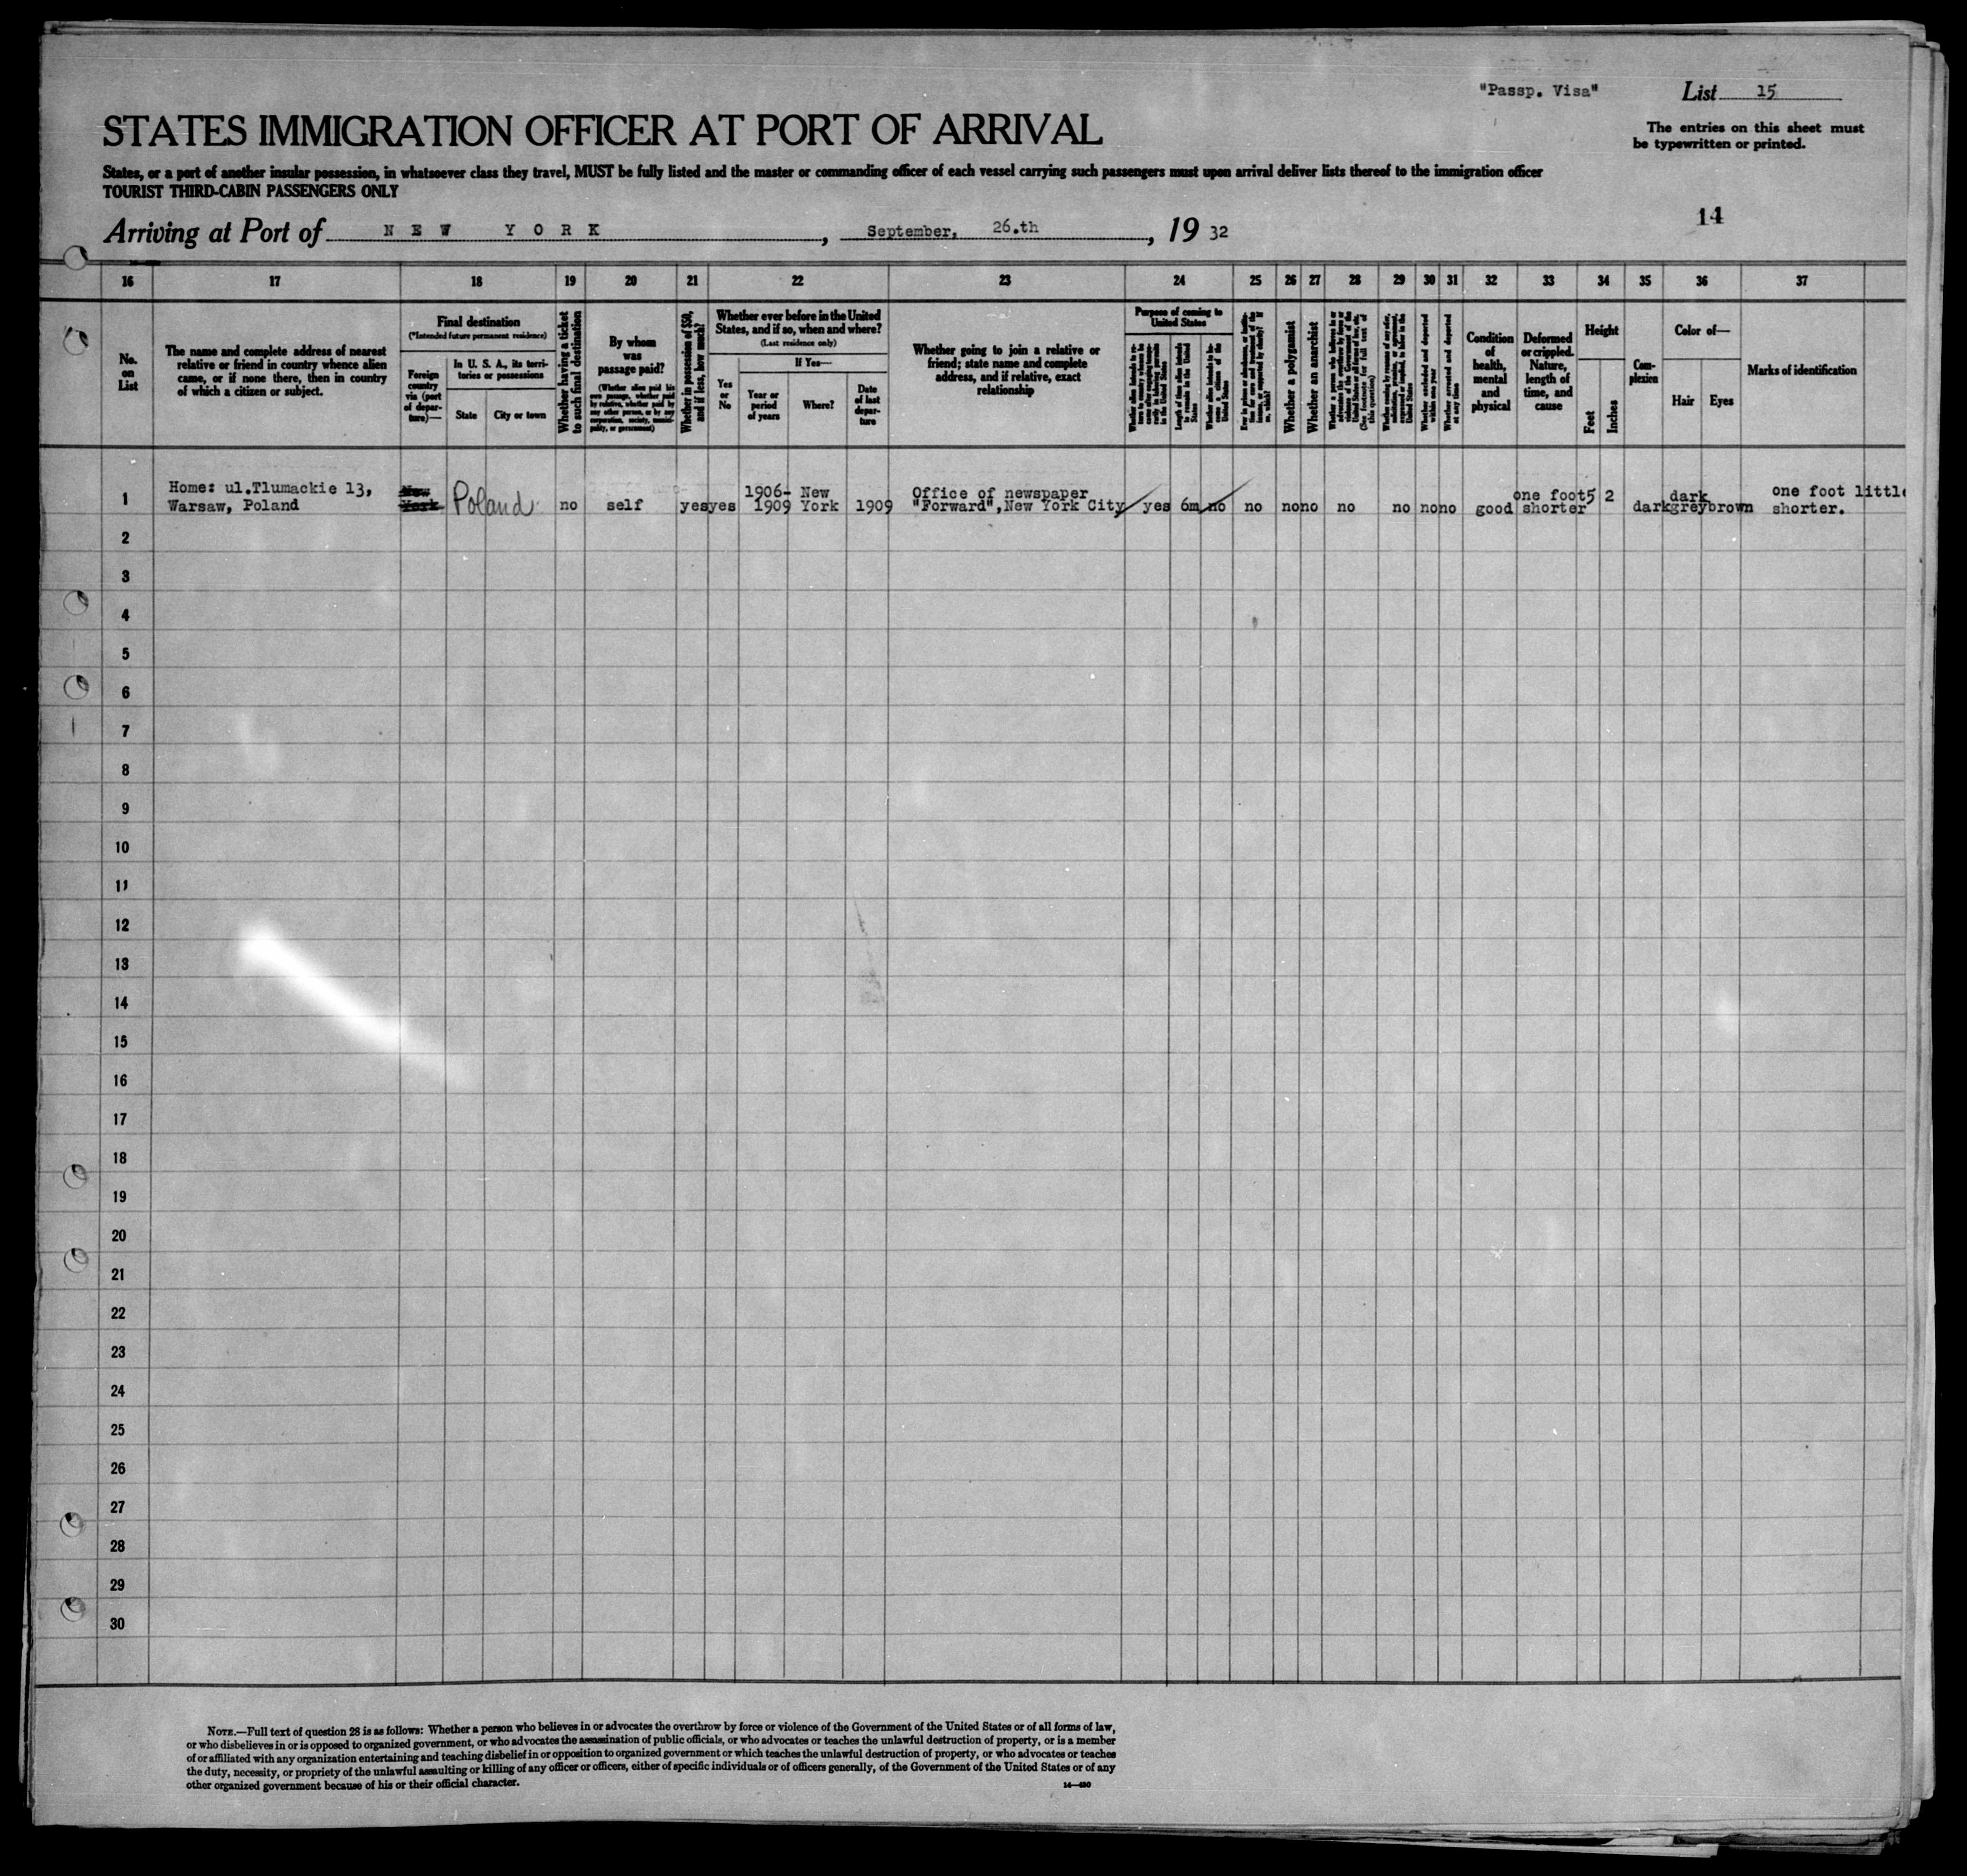 "Passp. Visa"
List 15
STATES IMMIGRATION OFFICER AT PORT OF ARRIVAL
The entries on this sheet must
be typewritten or printed.
States, or a port of another insular possession, in whatsoever class they travel, MUST be fully listed and the master or commanding officer of each vessel carrying such passengers must upon arrival deliver lists thereof to the immigration officer
TOURIST THIRD-CABIN PASSENGERS ONLY
14
Arriving at Port of NEW YORK, September, 26.th, 19 32
16 17 18 19 20 21 22 23 24 25 26 27 28 29 30 31 32 33 34 35 36 37
No.
on
List
The name and complete address of nearest
relative or friend in country whence alien
came, or if none there, then in country
of which a citizen or subject.
Final destination
(*Intended future permanent residence)
Foreign
country
via (port
of depar-
ture)—
In U. S. A., its terri-
tories or possessions
State
City or town
Whether having a ticket
to such final destination
By whom
was
passage paid?
(Whether alien paid his
own passage, whether paid
by relative, whether paid by
any other person, or by any
corporation, society, munici-
pality, or government)
Whether in possession of $50,
and if less, how much?
Whether ever before in the United
States, and if so, when and where?
(Last residence only)
Yes
or
No
If Yes—
Year or
period
of years
Where?
Date
of last
depar-
ture
Whether going to join a relative or
friend; state name and complete
address, and if relative, exact
relationship
Purpose of coming to
United States
Length of time alien intends
to remain in the United
States
Whether alien intends to be-
come a citizen of the
United States
Whether a polygamist
Whether an anarchist
Whether excluded and deported
within one year
Whether arrested and deported
at any time
Condition
of
health,
mental
and
physical
Deformed
or crippled.
Nature,
length of
time, and
cause
Height
Feet
Inches
Com-
plexion
Color of—
Hair
Eyes
Marks of identification
1
Home: ul.Tlumackie 13,
Warsaw, Poland
New
York
Poland
no
self
yes
yes
1906-
1909
New
York
1909
Office of newspaper
"Forward",New York City
yes
6m
no
no
no
no
no
no
no
no
good
one foot
shorter
5 2
dark
dark
grey
brown
one foot little
shorter.
2
3
4
5
6
7
8
9
10
11
12
13
14
15
16
17
18
19
20
21
22
23
24
25
26
27
28
29
30
NOTE.—Full text of question 28 is as follows: Whether a person who believes in or advocates the overthrow by force or violence of the Government of the United States or of all forms of law,
or who disbelieves in or is opposed to organized government, or who advocates the assassination of public officials, or who advocates or teaches the unlawful destruction of property, or is a member
of or affiliated with any organization entertaining and teaching disbelief in or opposition to organized government or which teaches the unlawful destruction of property, or who advocates or teaches
the duty, necessity, or propriety of the unlawful assaulting or killing of any officer or officers, either of specific individuals or of officers generally, of the Government of the United States or of any
other organized government because of his or their official character.
14—430